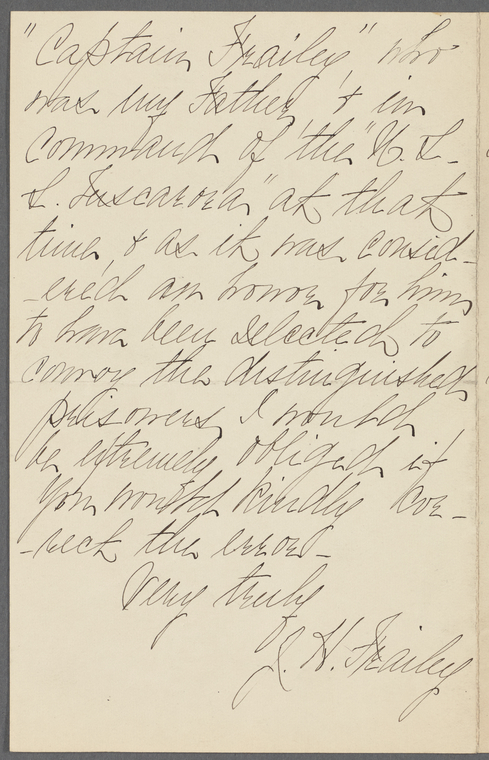 "Captain Frailey" who
was my Father, & in
command of the "U. S.
S. Tuscarora" at that
time, & as it was consid-
-ered an honor for him
to have been selected to
convoy the distinguished
prisoners, I would
be extremely obliged if
you would kindly cor-
-rect the error -
Very truly
J. H. Frailey